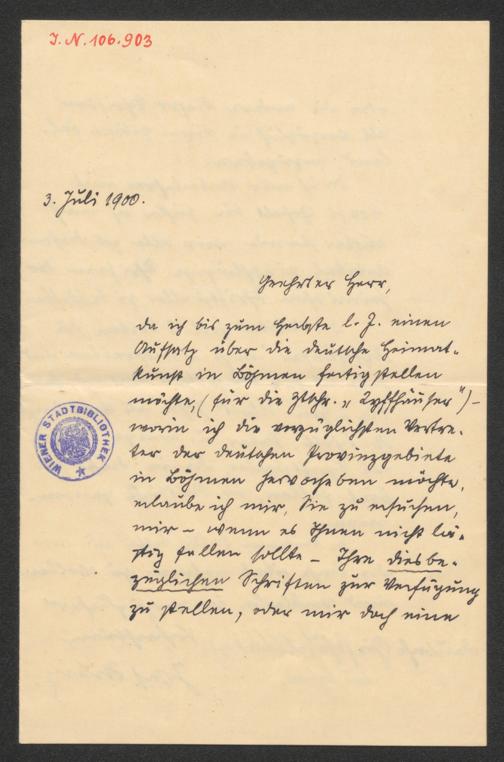 I.N. 106.903
3. Juli 1900.
Geehrter Herr,
da ich bis zum Herbste l. J. einen
Aufsatz über die deutsche Heimat-
kunst in Böhmen fertig stellen
möchte, (für die Ztschr. „Kyffhäuser") –
worin ich die vorzüglichsten Vertre-
ter der deutschen Provinzgebiete
in Böhmen hervorheben möchte,
erlaube ich mir, Sie zu ersuchen,
mir – wenn es Ihnen nicht lä-
stig fallen sollte – Ihre diesbe-
züglichen Schriften zur Verfügung
zu stellen, oder mir doch eine
WIENER STADTBIBLIOTHEK